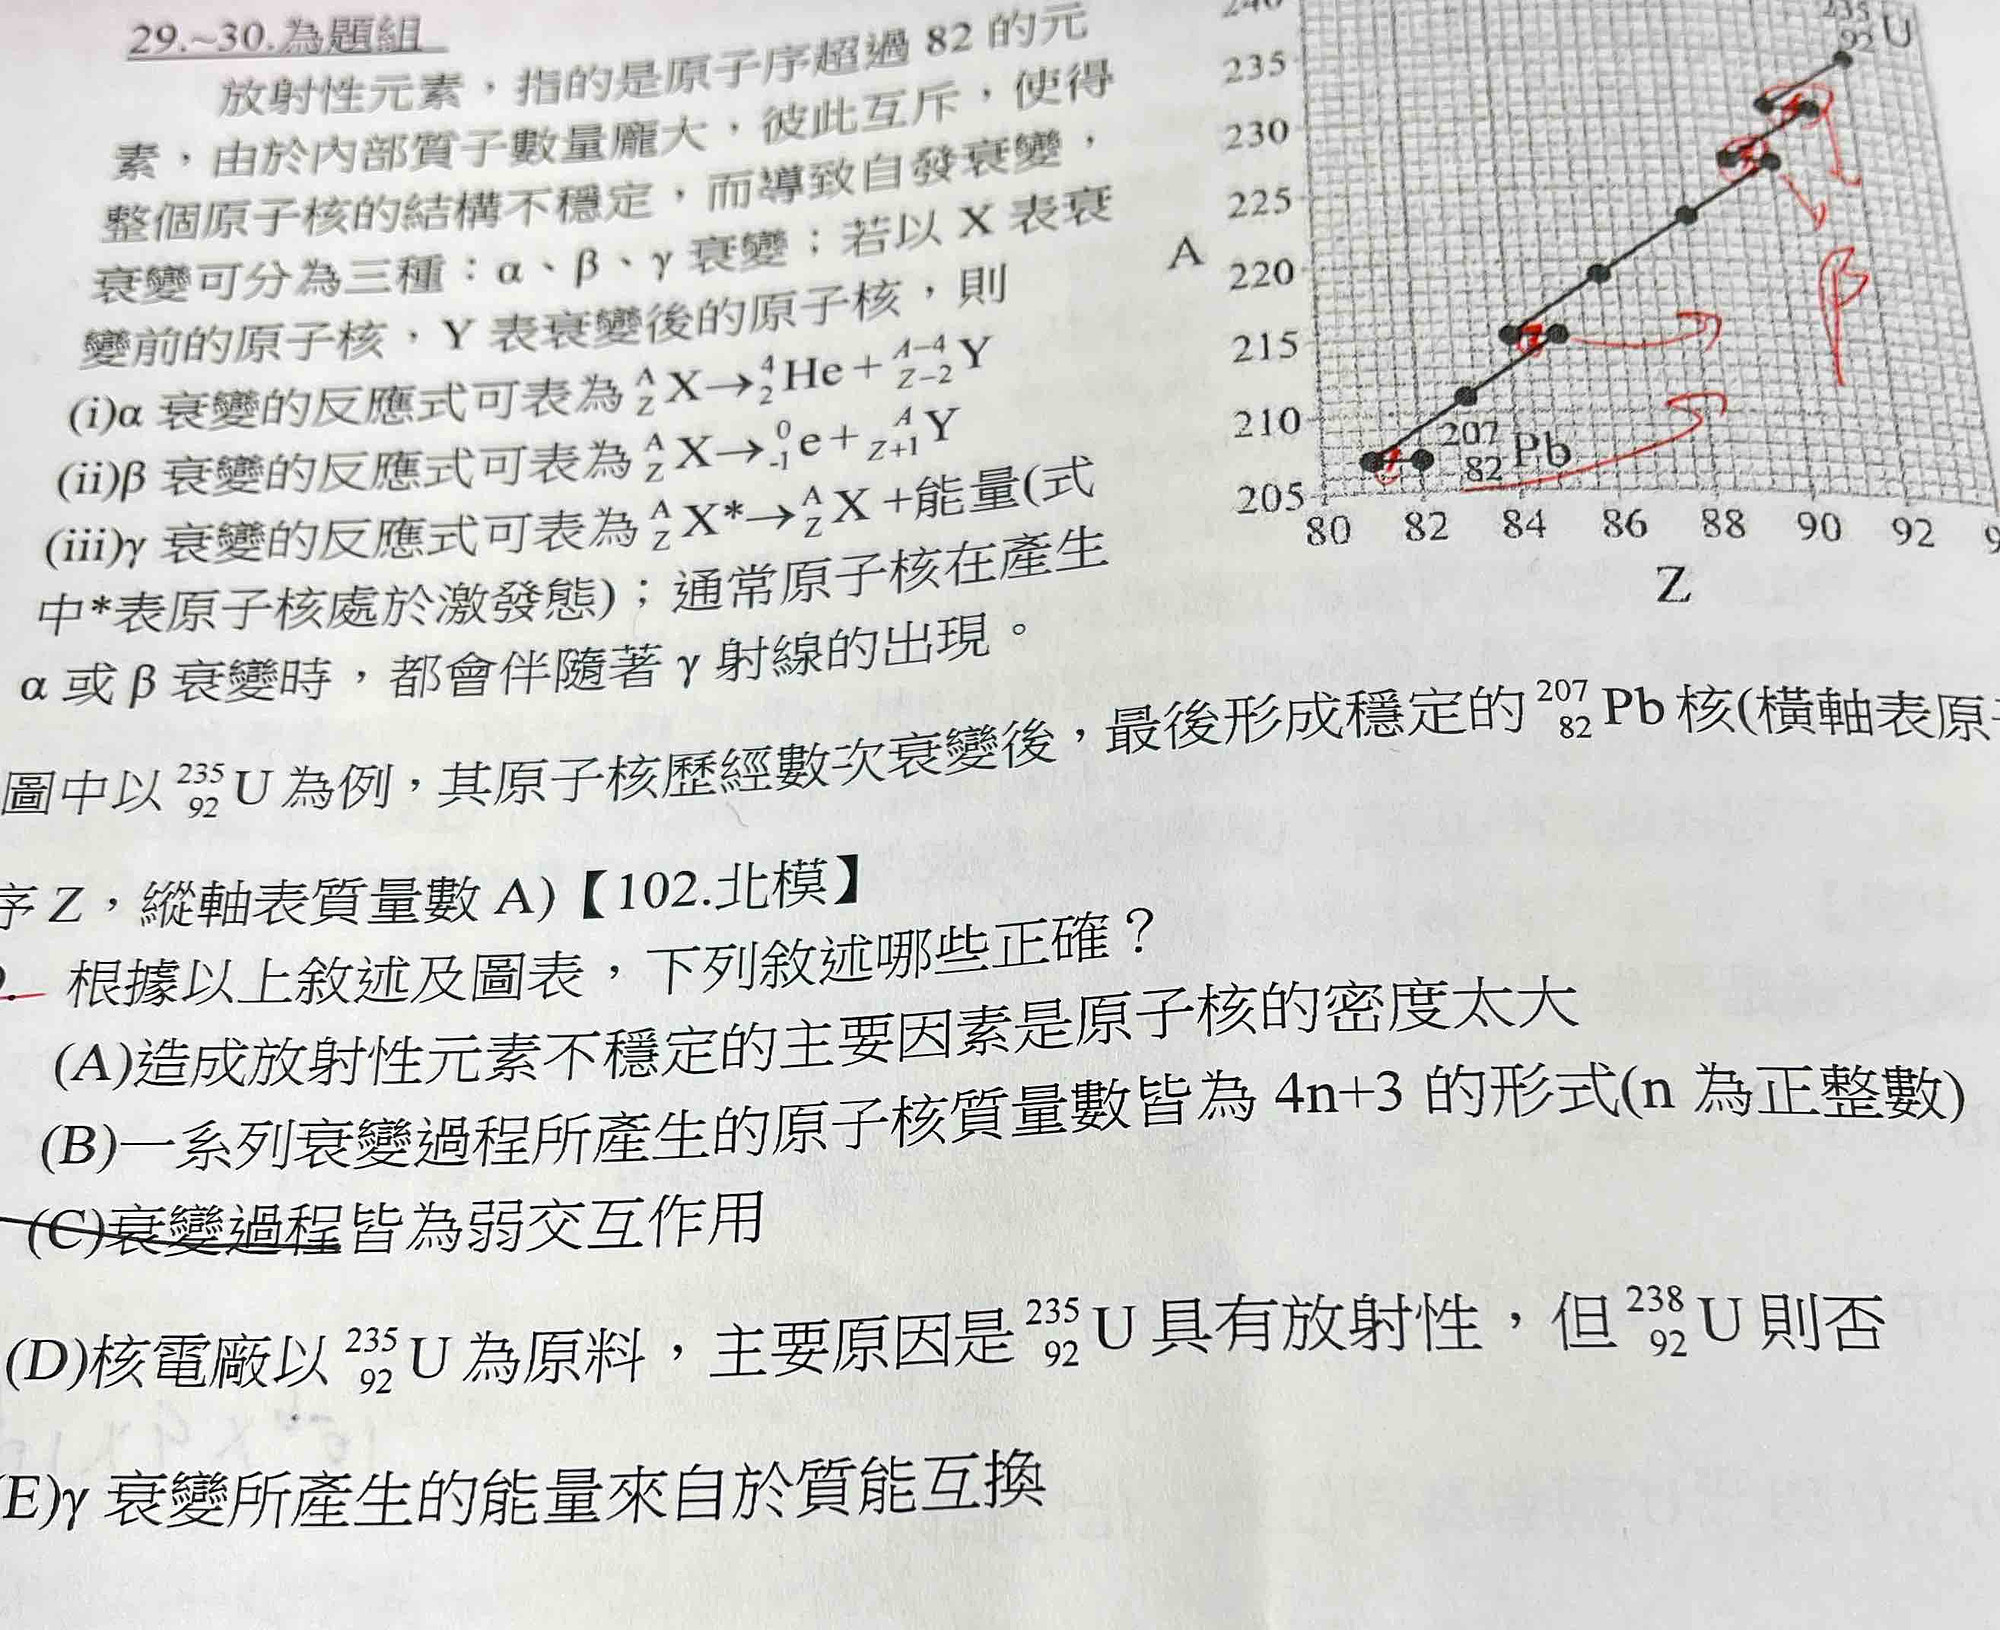 29.~30.為題組
放射性元素，指的是原子序超過 82 的元
素，由於內部質子數量龐大，彼此互斥，使得
整個原子核的結構不穩定，而導致自發衰變，
衰變可分為三種：α、β、γ 衰變；若以 X 表衰
變前的原子核，Y 表衰變後的原子核，則
(i)α 衰變的反應式可表為 ᴬ_Z X→⁴₂He+ᴬ⁻⁴_Z₋₂ Y
(ii)β 衰變的反應式可表為 ᴬ_Z X→⁰₋₁e+ᴬ_Z₊₁ Y
(iii)γ 衰變的反應式可表為 ᴬ_Z X*→ᴬ_Z X +能量(式
中*表原子核處於激發態)；通常原子核在產生
α 或 β 衰變時，都會伴隨著 γ 射線的出現。
240
235
230
225
A
220
215
210
205
80 82 84 86 88 90 92
Z
²³⁵₉₂U
²⁰⁷₈₂Pb
β
圖中以 ²³⁵₉₂U 為例，其原子核歷經數次衰變後，最後形成穩定的 ²⁰⁷₈₂Pb 核(橫軸表原
序 Z，縱軸表質量數 A)【102.北模】
根據以上敘述及圖表，下列敘述哪些正確？
(A)造成放射性元素不穩定的主要因素是原子核的密度太大
(B)一系列衰變過程所產生的原子核質量數皆為 4n+3 的形式(n 為正整數)
(C)衰變過程皆為弱交互作用
(D)核電廠以 ²³⁵₉₂U 為原料，主要原因是 ²³⁵₉₂U 具有放射性，但 ²³⁸₉₂U 則否
E)γ 衰變所產生的能量來自於質能互換